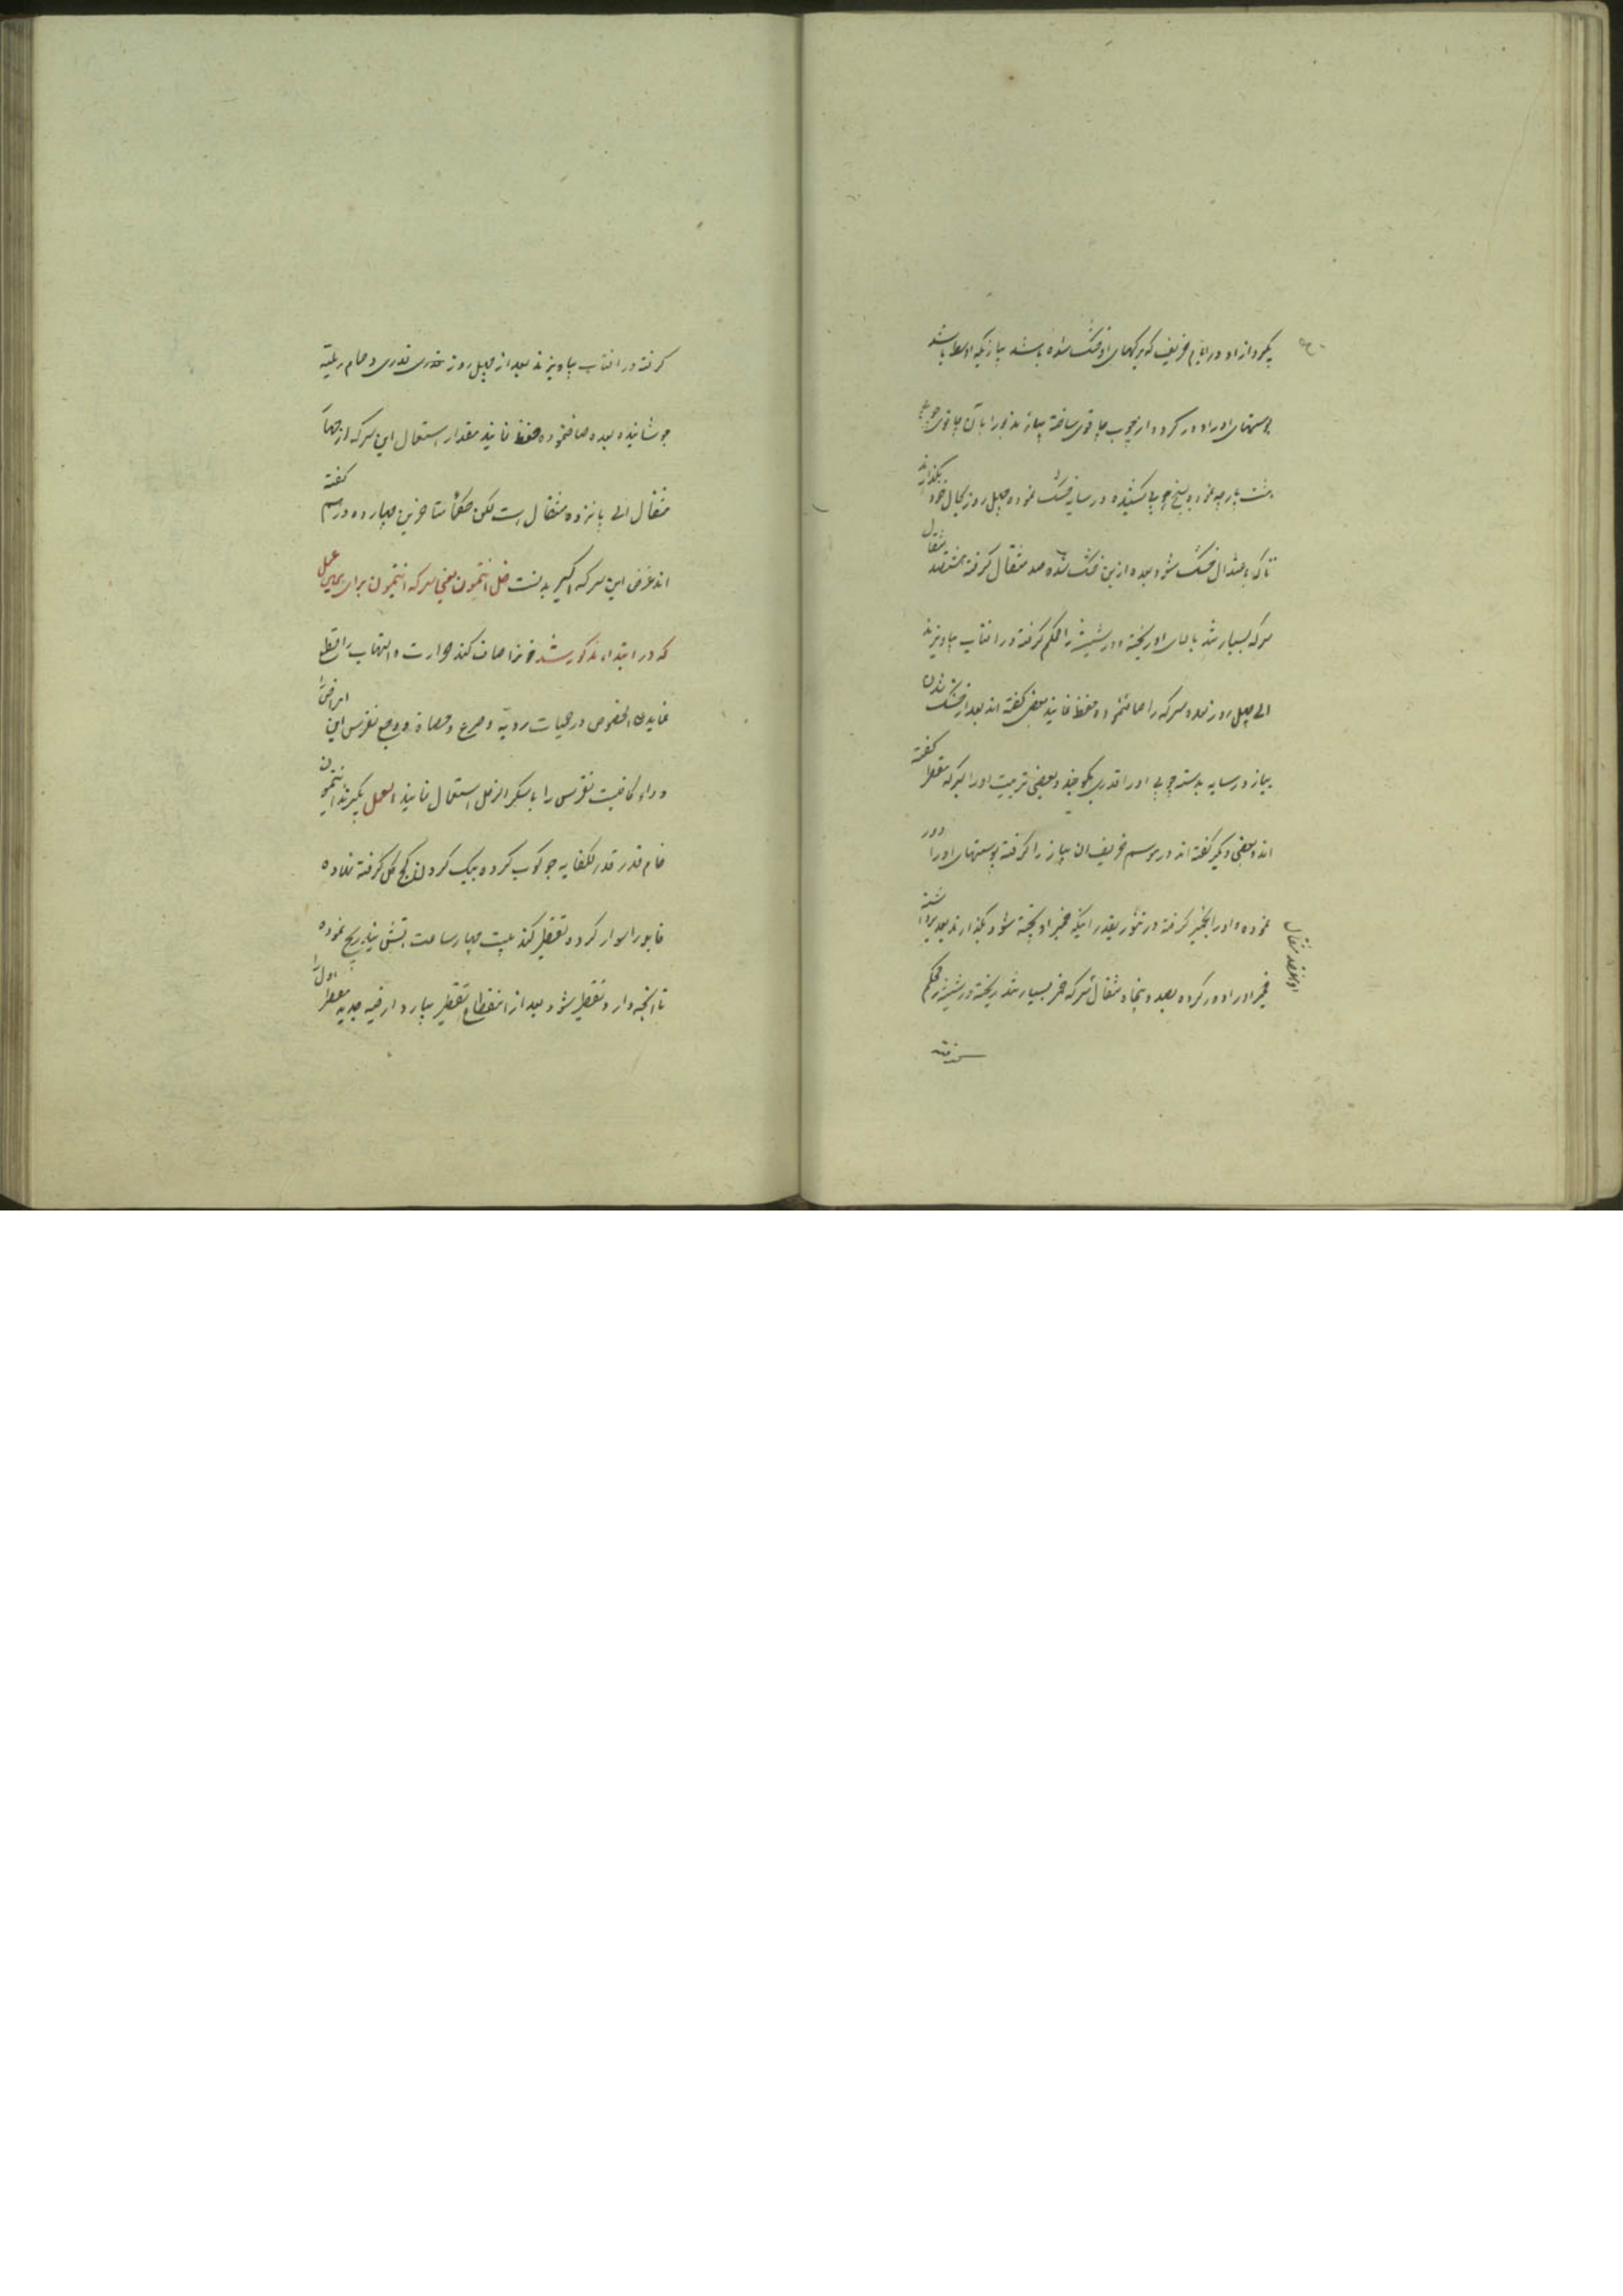 بگیرد از او در ایام خریف که برگهای او خشک شده باشد پیازیکه اوسط باشد
پوستهای او را دور کرده از چوب چاقوی ساخته پیاز مذبور را بآن چاقوی چوبی
پارچه نموده بسیخ چوبی کشیده در سایه خشک نموده چهل روز بحال خود بگذارند
تا که باعتدال خشک شود بعده ازین خشک شده صد مثقال گرفته هشتصد مثقال
سرکه بسیار تند بالای او ریخته و در شیشه را محکم گرفته در افتاب بیاویزند
الی چهل روز بعده سرکه را صاف نموده حفظ نمایند بعضی گفته اند بعد از خشک شدن
پیاز در سایه بدسته چوبی او را قدری بکوبند و بعضی تربیت او را بسرکه مقطر گفته
اند و بعضی دیگر گفته اند در موسم خریف ان پیاز را گرفته پوستهای او را دور
نموده و او را بخمیر گرفته در تنور بقدر اینکه خمیر او پخته شود بگذارند بعد برداشته
خمیر او را دور کرده بصد و پنجاه مثقال سرکه خمر بسیار تند ریخته در شیشه را محکم
مثقال
گرفته در افتاب بیاویزند بعد از چهل روز قدری در حمام ریلیه
جوشانیده بعده صاف نموده حفظ نمایند مقدار استعمال این سرکه از چهار
مثقال الی پانزده مثقال است لکن حکمای متاخرین چهارده درم گفته
اند غرض این سرکه اکسیر بدنست خل انتیمون یعنی سرکه انتیمون برای عمل
که در ابتدا مذکور شد خونرا صاف کند حرارت و التهاب را قطع
نماید علی الخصوص در حمیات ردیه و صرع و حصاة و وجع نقرس این امراض را
دواء کافیست نقرس را با سکر الزحل استعمال نمایند العمل بگیرند انتیمون
خام قدر قدر الکفایه جوکوب کرده بیک گردن کج گل گرفته نهاده
قابوررا سوار کرده تقطیر کند بیست چهار ساعت اتش بتدریج نموده
تا آنچه دارد تقطیر شود بعد از انقطاع تقطیر بیارد ارضیه جدید مقطر اول را